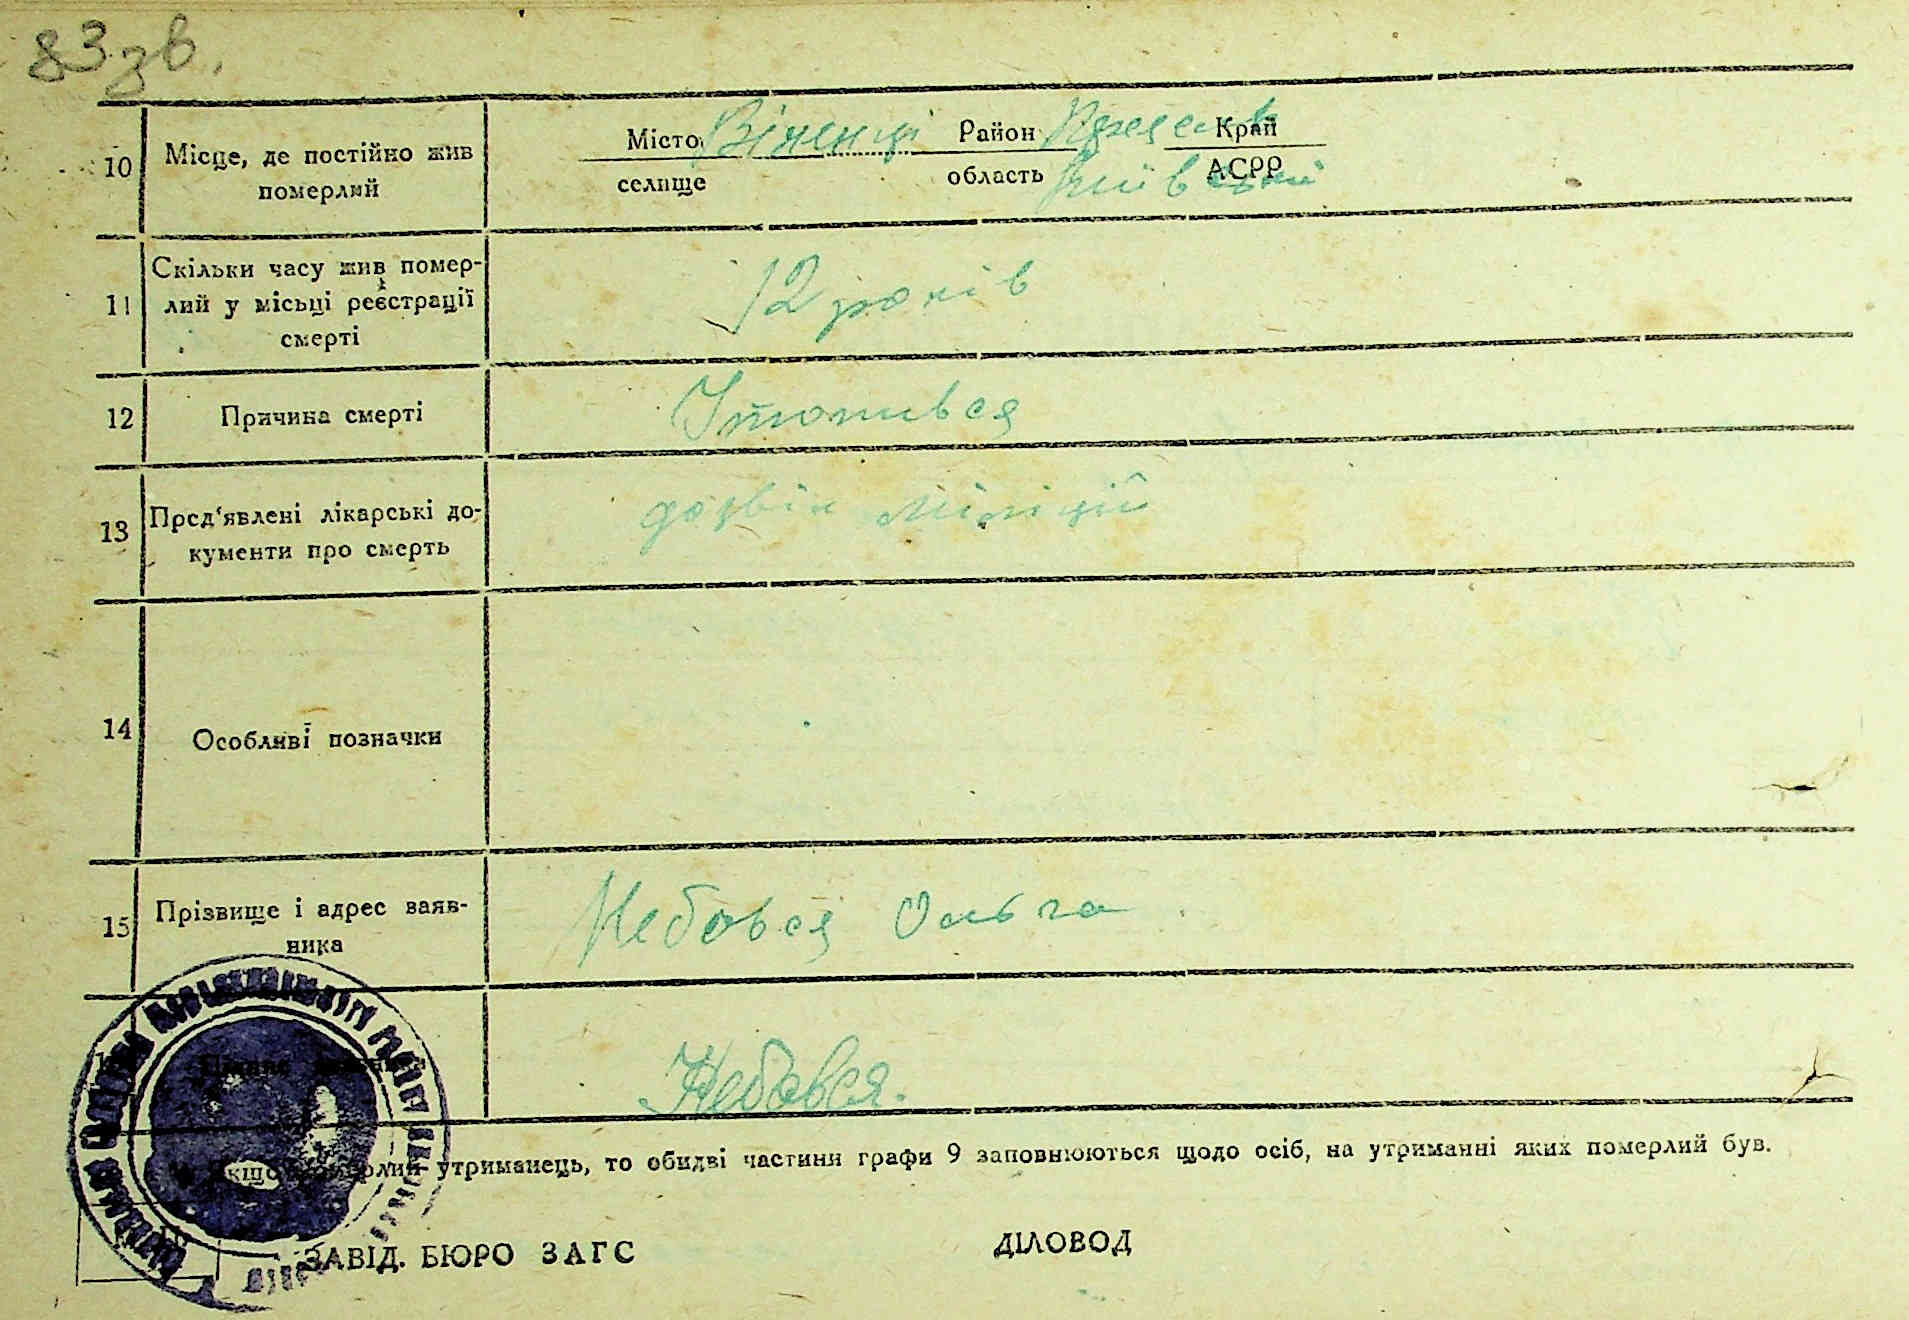 83 зв.
10 Місце, де постійно жив померлий
Місто Віненці Район Край
селище область Київській АСРР
11 Скільки часу жив померлий у місьці реєстрації смерті
12 років
12 Причина смерті
Утопився
13 Пред‘явлені лікарські документи про смерть
дозвіл міліції
14 Особливі позначки
15 Прізвище і адрес заявника
Небовся Ольга
Небовся.
утриманець, то обидві частини графи 9 заповнюються щодо осіб, на утриманні яких померлий був.
ЗАВІД. БЮРО ЗАГС ДІЛОВОД